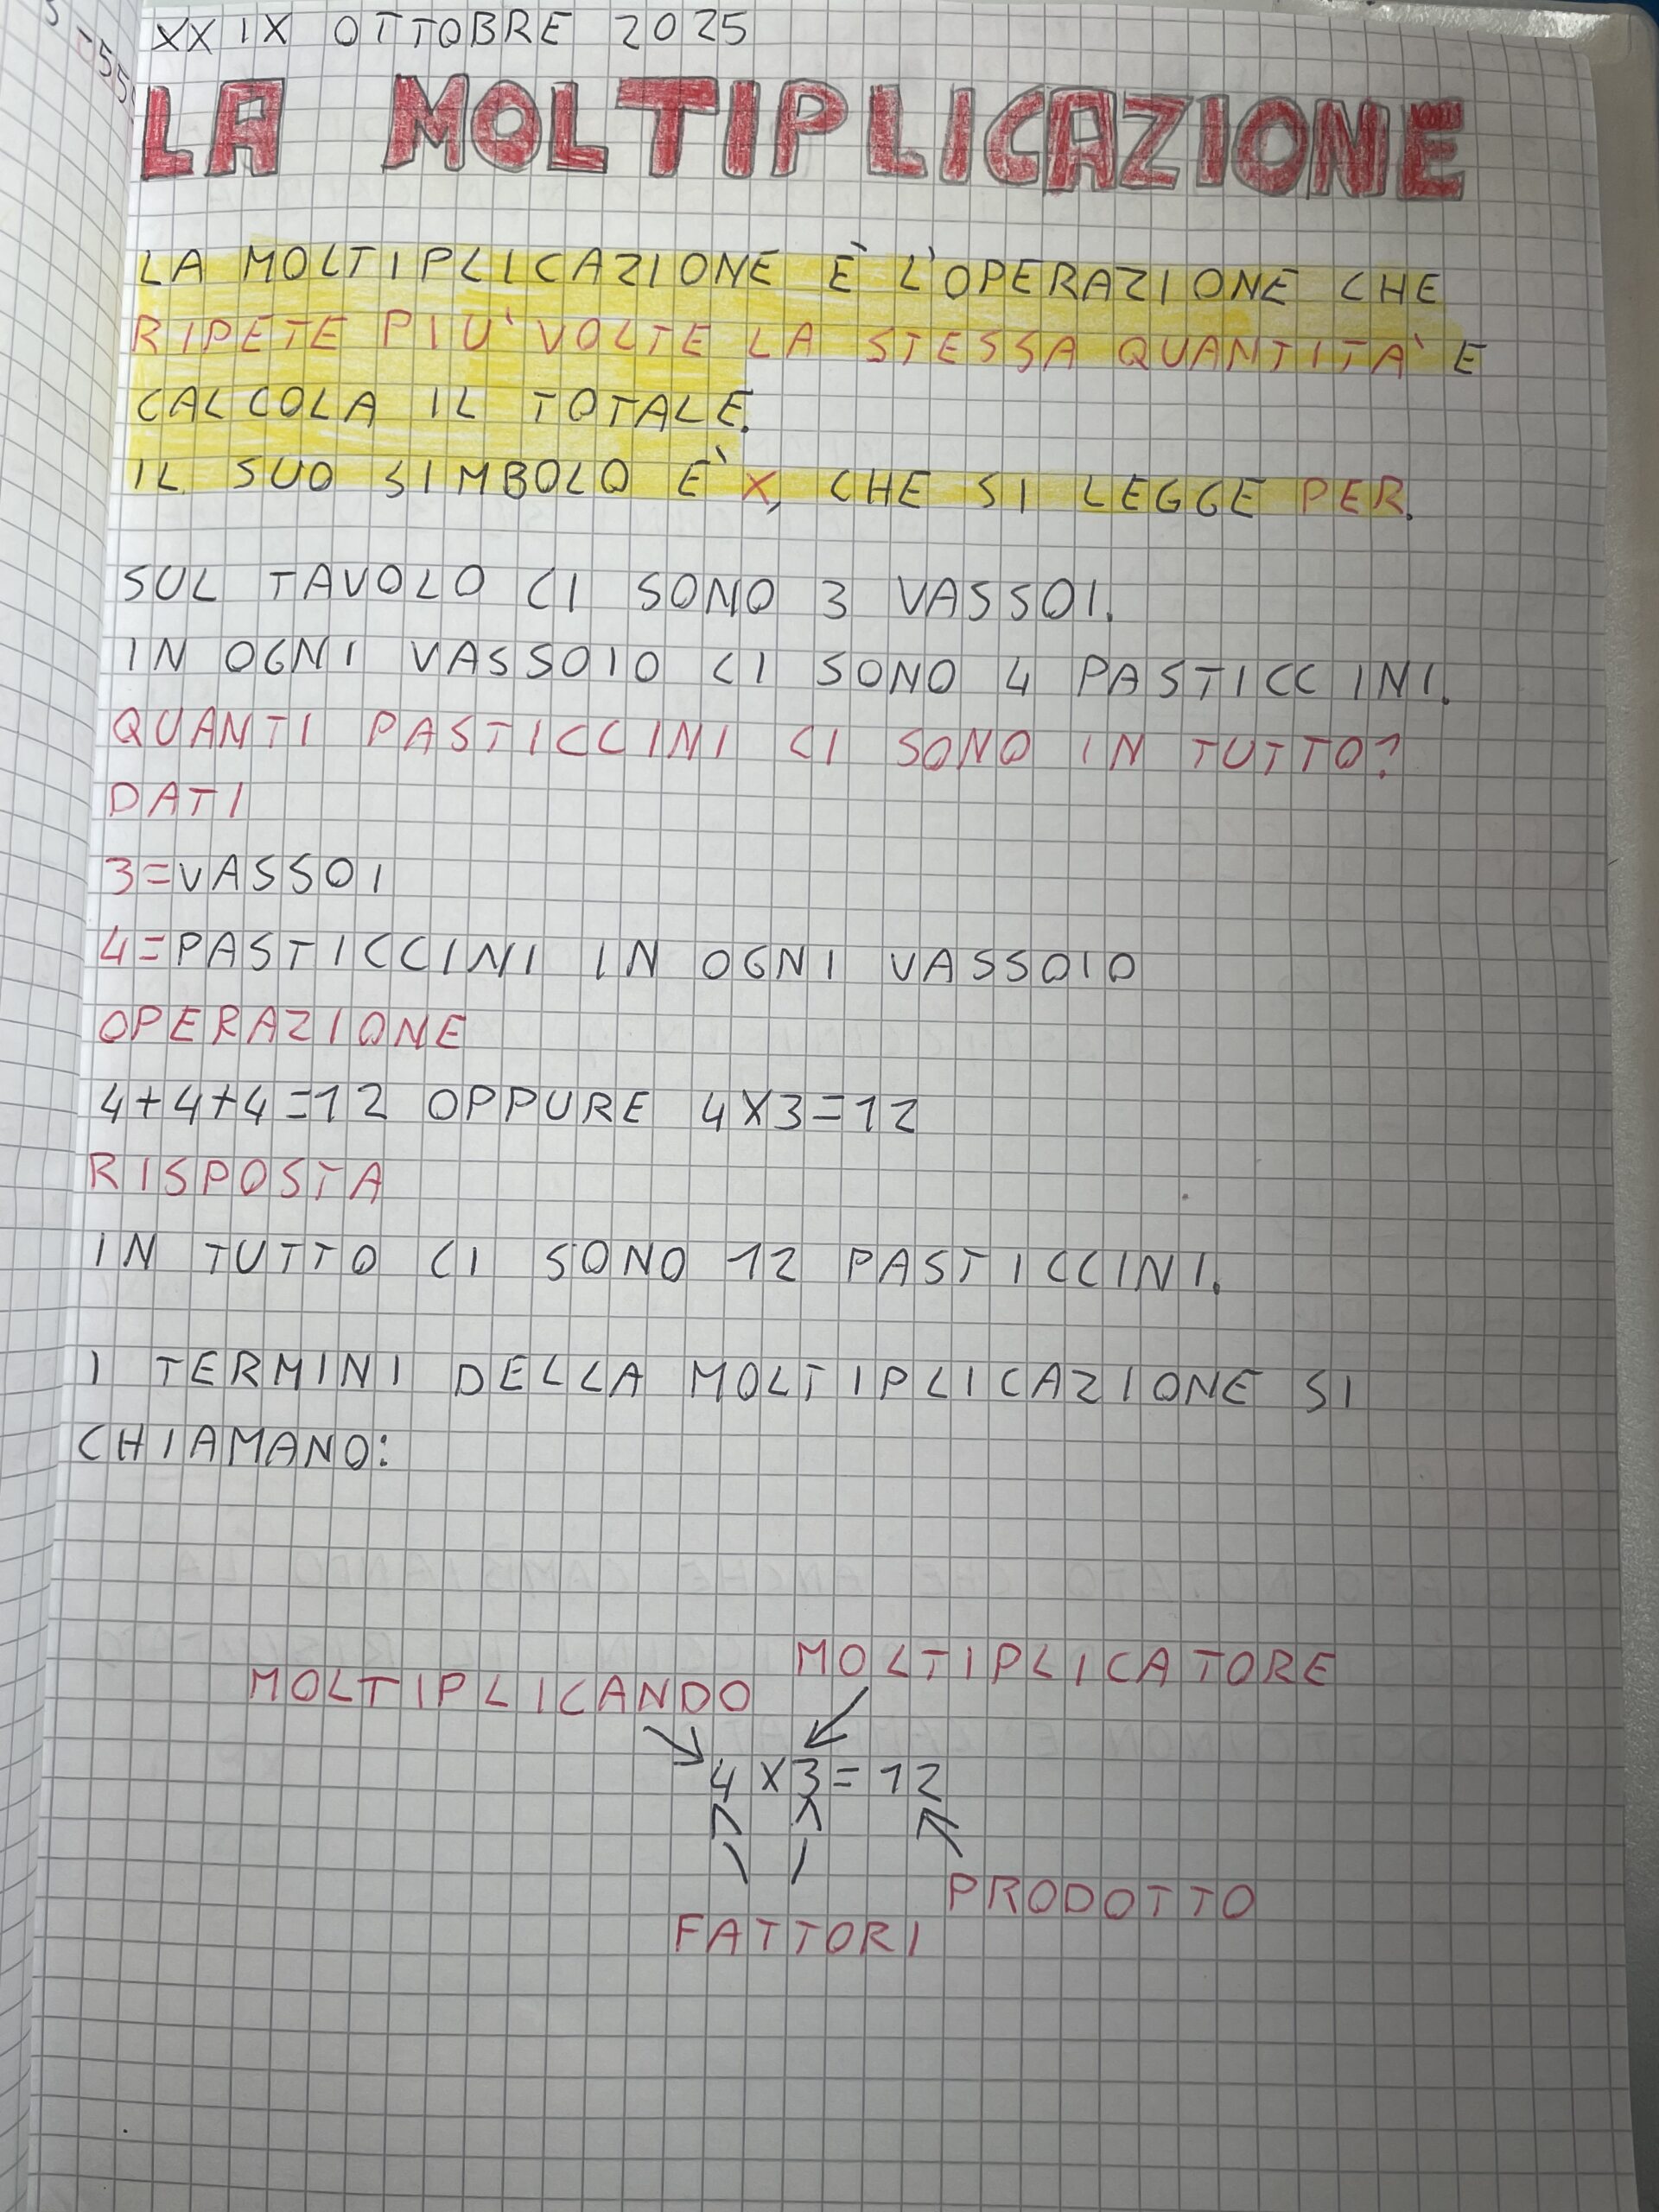 XXIX OTTOBRE 2025
LA MOLTIPLICAZIONE
LA MOLTIPLICAZIONE È L'OPERAZIONE CHE
RIPETE PIU' VOLTE LA STESSA QUANTITA' E
CALCOLA IL TOTALE.
IL SUO SIMBOLO E' X, CHE SI LEGGE PER.
SUL TAVOLO CI SONO 3 VASSOI.
IN OGNI VASSOIO CI SONO 4 PASTICCINI.
QUANTI PASTICCINI CI SONO IN TUTTO?
DATI
3=VASSOI
4=PASTICCINI IN OGNI VASSOIO
OPERAZIONE
4+4+4=12 OPPURE 4X3=12
RISPOSTA
IN TUTTO CI SONO 12 PASTICCINI.
I TERMINI DELLA MOLTIPLICAZIONE SI
CHIAMANO:
MOLTIPLICANDO MOLTIPLICATORE
4X3=12
PRODOTTO
FATTORI